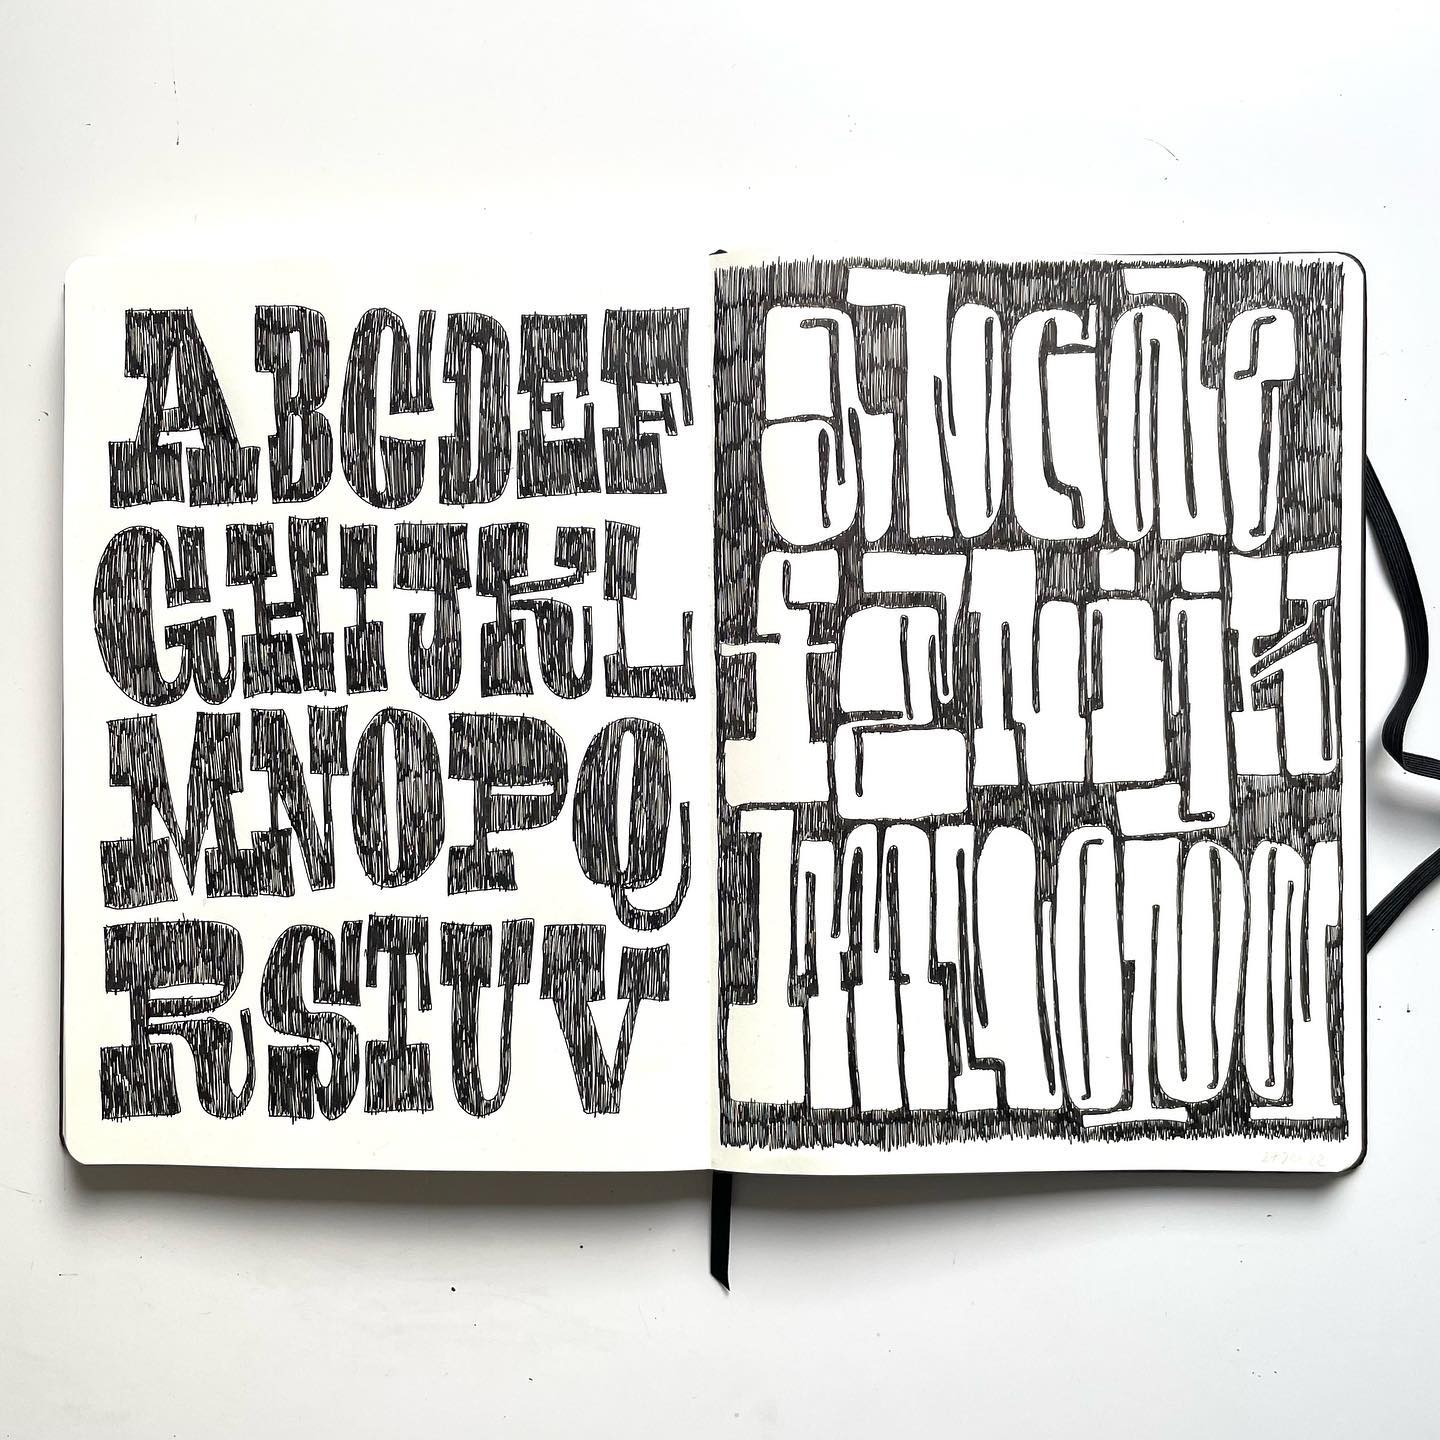 ABCDEF
GHIJKL
MNOPQ
RSTUV
abcde
fghijk
lmnopq